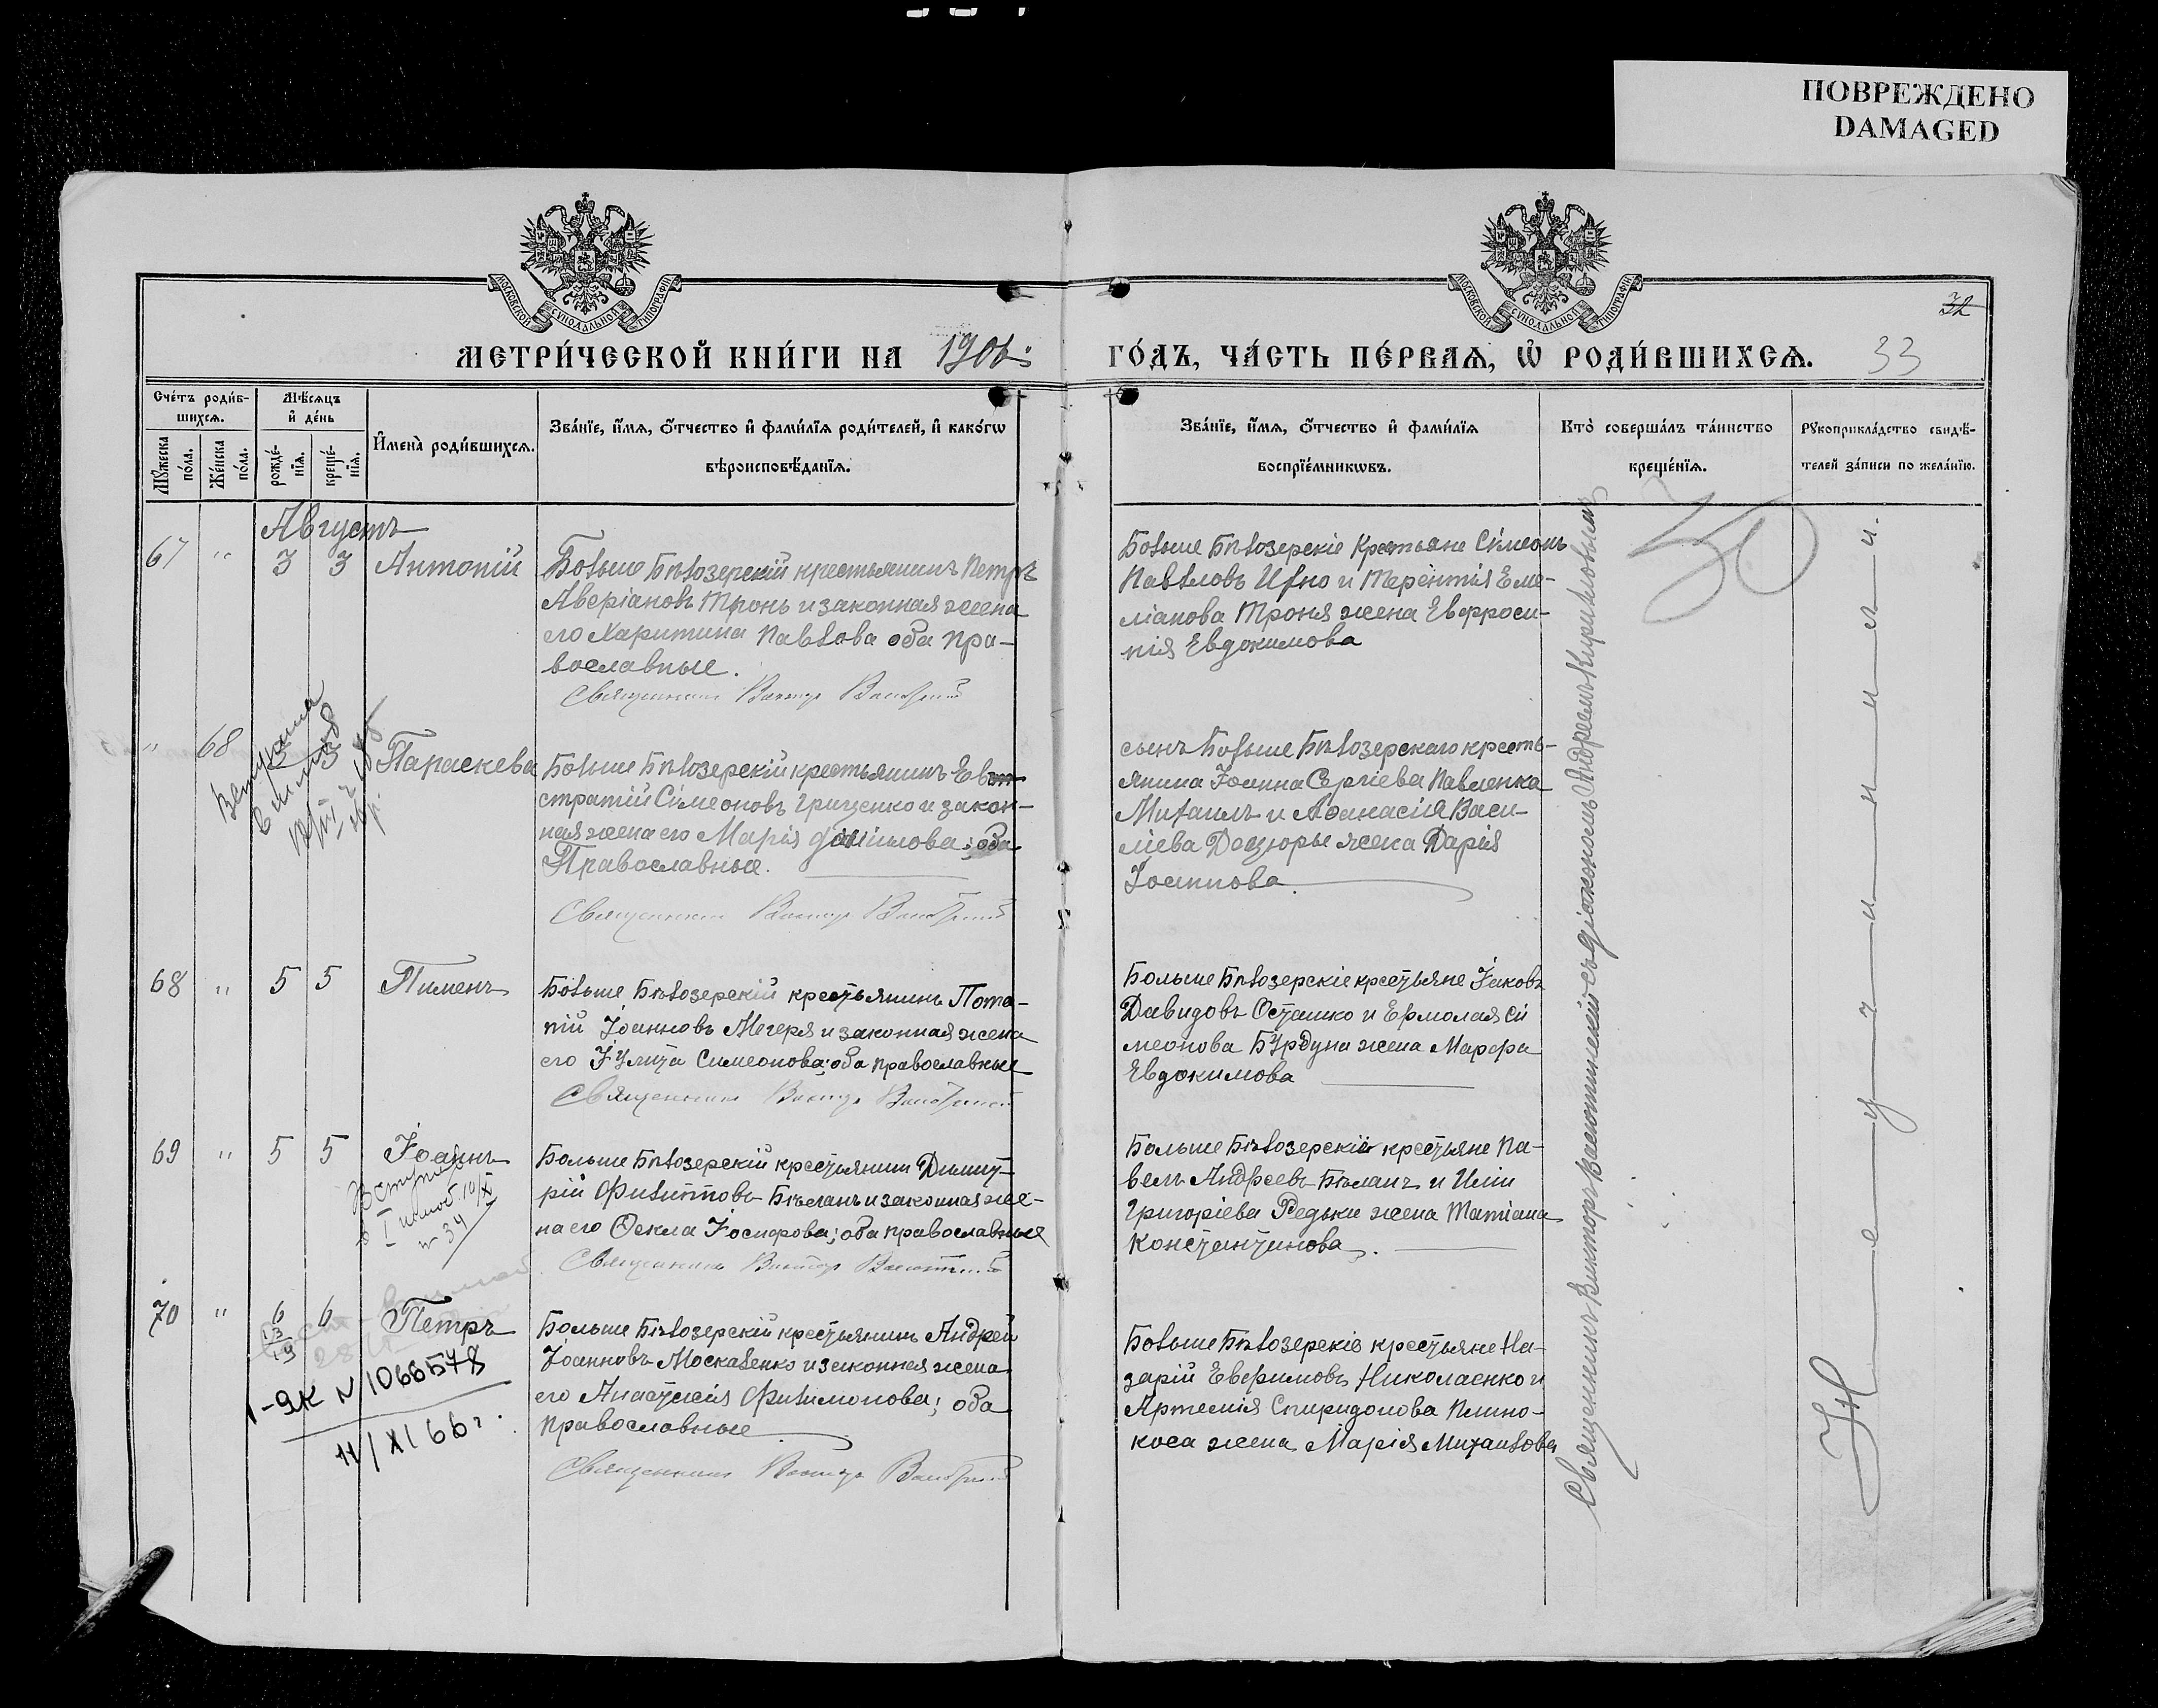 ПОВРЕЖДЕНО
DAMAGED
МОСКОВСКОЙ СѴНОДАЛЬНОЙ ТИПОГРАФІИ
МОСКОВСКОЙ СѴНОДАЛЬНОЙ ТИПОГРАФІИ
32
МЕТРИ́ЧЕСКОЙ КНИ́ГИ НА 1906
ГО́ДЪ, ЧА́СТЬ ПЕ́РВАѦ, Ѡ҆ РОДИ́ВШИХСѦ. 33
Сче́тъ роди́вшихсѧ.
Мꙋ́жеска по́ла.
Же́нска по́ла.
Мѣ́сѧцъ и҆ де́нь
рожде́нїѧ.
креще́нїѧ.
И҆мена̀ роди́вшихсѧ.
Зва́нїе, и҆́мѧ, ѻ҆́тчество и҆ фами́лїѧ роди́телей, и҆ како́гѡ
вѣроисповѣ́данїѧ.
Зва́нїе, и҆́мѧ, ѻ҆́тчество и҆ фами́лїѧ
воспрїе́мникѡвъ.
Кто̀ соверша́лъ та́инство
креще́нїѧ.
Рꙋкоприкла́дство свидѣ́-
телей за́писи по жела́нїю.
Августъ
67 " 3 3 Антоній
Больше Бѣлозерскій крестьянинъ Петръ
Аверіановъ Тронь и законная жена
его Харитина Павлова оба пра-
вославные.
Священникъ Викторъ
Больше Бѣлозерскіе Крестьяне Симеонъ
Павловъ и Терентія Еме-
ліанова Троня жена Евфроси-
нія Евдокимова
" 68 3 3 Параскева
Больше Бѣлозерскій крестьянинъ Ев
стратій Симеоновъ Гриценко и закон-
ная жена его Марія Даніилова; оба
Православные.
Священникъ Викторъ
сынъ Больше Бѣлозерскаго кресть-
янина Іоанна Сергіева Павленка
Михаилъ и Аѳанасія Васи-
ліева жена Дарія
Іоаннова.
68 " 5 5 Пименъ
Больше Бѣлозерскій крестьянинъ Пота-
пій Іоанновъ Мегеря и законная жена
его Іулита Симеонова; оба православные
Священникъ Викторъ
Больше Бѣлозерскіе крестьяне Іаковъ
Давидовъ Осташко и Ермолая Си
меонова Бурдуна жена Марфа
Евдокимова
69 " 5 5 Іоаннъ
Вступил
в I
№ 34
Больше Бѣлозерскій крестьянинъ Димит-
рій Филипповъ Бѣланъ и законная же-
на его Ѳекла Іосифова; оба православные
Священникъ Викторъ
Больше Бѣлозерскіе крестьяне Па-
велъ Андреевъ Бѣланъ и Иліи
Григоріева Редьки жена Татіана
Константинова.
70 " 6 6 Петръ
13
19
1-ЯК № 1066578
11/XI 66 г.
Больше Бѣлозерскій крестьянинъ Андрей
Іоанновъ Москаленко и законная жена
его Анастасія Филимонова; оба
православные
Священникъ Викторъ
Больше Бѣлозерскіе крестьяне На-
зарій Евфимовъ Николаенко и
Артемія Спиридонова
коса жена Марія Михаилова
Священникъ Викторъ съ діакономъ Андреемъ Кирилловымъ
Неучинили.